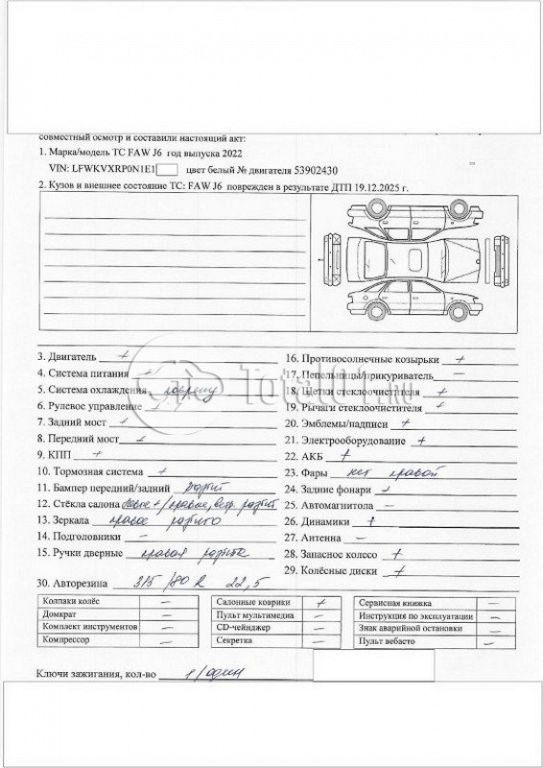 совместный осмотр и составили настоящий акт:
1. Марка/модель ТС FAW J6 год выпуска 2022
VIN: LFWKVXRP0N1E1 цвет белый № двигателя 53902430
2. Кузов и внешнее состояние ТС: FAW J6 поврежден в результате ДТП 19.12.2025 г.
3. Двигатель +
4. Система питания +
5. Система охлаждения
6. Рулевое управление +
7. Задний мост +
8. Передний мост +
9. КПП +
10. Тормозная система +
11. Бампер передний/задний
12. Стёкла салона
13. Зеркала правое разбито
14. Подголовники –
15. Ручки дверные правая разбита
16. Противосолнечные козырьки +
17. Пепельницы/прикуриватель –
18. Щетки стеклоочистителя +
19. Рычаги стеклоочистителя +
20. Эмблемы/надписи +
21. Электрооборудование +
22. АКБ +
23. Фары нет правой
24. Задние фонари
25. Автомагнитола –
26. Динамики +
27. Антенна –
28. Запасное колесо +
29. Колёсные диски +
30. Авторезина 315/80 R 22,5
Колпаки колёс –
Домкрат –
Комплект инструментов –
Компрессор –
Салонные коврики +
Пульт мультимедиа –
CD-чейнджер –
Секретка –
Сервисная книжка –
Инструкция по эксплуатации –
Знак аварийной остановки –
Пульт вебасто –
Ключи зажигания, кол-во 1/один
Total01.ru